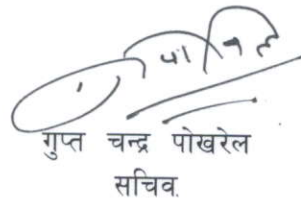 गुप्त चन्द्र पोखरेल
सचिव